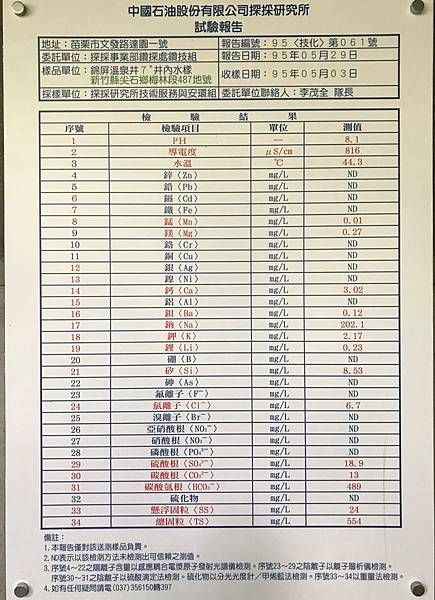 中國石油股份有限公司探採研究所
試驗報告
地址：苗栗市文發路達園一號 報告編號：９５〈技化〉第０６１號
委託單位：探採事業部鑽探處鑽技組 報告日期：９５年０５月２９日
樣品單位：錦屏溫泉井７"井內水樣
新竹縣尖石鄉梅林段487地號 收樣日期：９５年０５月０３日
採樣單位：探採研究所技術服務與安環組 委託單位聯絡人：李茂全 隊長
檢 驗 結 果
序號 檢驗項目 單位 測值
1 PH — 8.1
2 導電度 μS/cm 816
3 水溫 ℃ 44.3
4 鋅〈Zn〉 mg/L ND
5 鉛〈Pb〉 mg/L ND
6 鎘〈Cd〉 mg/L ND
7 鐵〈Fe〉 mg/L ND
8 錳〈Mn〉 mg/L 0.01
9 鎂〈Mg〉 mg/L 0.27
10 鉻〈Cr〉 mg/L ND
11 銅〈Cu〉 mg/L ND
12 銀〈Ag〉 mg/L ND
13 鎳〈Ni〉 mg/L ND
14 鈣〈Ca〉 mg/L 3.02
15 鋁〈Al〉 mg/L ND
16 鋇〈Ba〉 mg/L 0.12
17 鈉〈Na〉 mg/L 202.1
18 鉀〈K〉 mg/L 2.17
19 鋰〈Li〉 mg/L 0.23
20 硼〈B〉 mg/L ND
21 矽〈Si〉 mg/L 8.53
22 砷〈As〉 mg/L ND
23 氟離子〈F⁻〉 mg/L ND
24 氯離子〈Cl⁻〉 mg/L 6.7
25 溴離子〈Br⁻〉 mg/L ND
26 亞硝酸根〈NO₂⁻〉 mg/L ND
27 硝酸根〈NO₃⁻〉 mg/L ND
28 磷酸根〈PO₄³⁻〉 mg/L ND
29 硫酸根〈SO₄²⁻〉 mg/L 18.9
30 碳酸根〈CO₃²⁻〉 mg/L 13
31 碳酸氫根〈HCO₃⁻〉 mg/L 489
32 硫化物 mg/L ND
33 懸浮固粒〈SS〉 mg/L 24
34 總固粒〈TS〉 mg/L 554
備註：
1.本報告僅對該送測樣品負責。
2.ND表示以該檢測方法未檢測出可信賴之測值。
3.序號4~22之陽離子含量以感應耦合電漿原子發射光譜儀檢測。序號23~29之陰離子以離子層析儀檢測。
序號30~31之陰離子以硫酸滴定法檢測。硫化物以分光光度計/甲烯藍法檢測。序號33~34以重量法檢測。
4.如有任何疑問請電(037)356150轉397